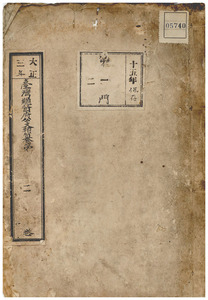 05740
十五年保存
第一門
二
大正三年
臺灣總督府公文類纂
二
卷